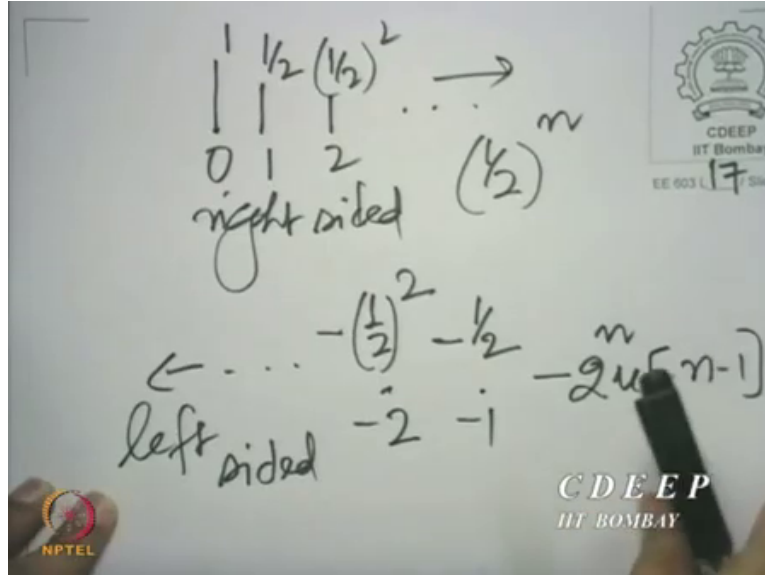 1 1/2 (1/2)²
0 1 2 . . . →
right sided (1/2)ⁿ
CDEEP
IIT Bombay
EE 603 L 17 / Sli
← . . . -(1/2)² -1/2 -2ⁿu[-n-1]
-2 -1
left sided
CDEEP
IIT BOMBAY
NPTEL